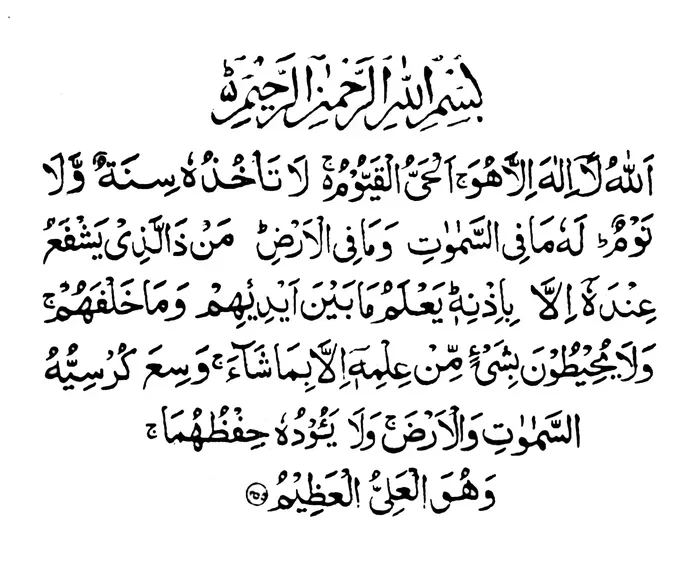 بِسْمِ اللهِ الرَّحْمٰنِ الرَّحِيْمِ ؕ
اَللهُ لَآ اِلٰهَ اِلَّا هُوَ ۚ اَلْحَىُّ الْقَيُّوْمُ ۚ لَا تَاْخُذُهٗ سِنَةٌ وَّلَا
نَوْمٌ ؕ لَهٗ مَا فِى السَّمٰوٰتِ وَمَا فِى الْاَرْضِ ؕ مَنْ ذَا الَّذِىْ يَشْفَعُ
عِنْدَهٗٓ اِلَّا بِاِذْنِهٖ ؕ يَعْلَمُ مَا بَيْنَ اَيْدِيْهِمْ وَمَا خَلْفَهُمْ ۚ
وَلَا يُحِيْطُوْنَ بِشَىْءٍ مِّنْ عِلْمِهٖٓ اِلَّا بِمَا شَآءَ ۚ وَسِعَ كُرْسِيُّهُ
السَّمٰوٰتِ وَالْاَرْضَ ۚ وَلَا يَـُٔوْدُهٗ حِفْظُهُمَا ۚ
وَهُوَ الْعَلِىُّ الْعَظِيْمُ ﴿۲۵۵﴾